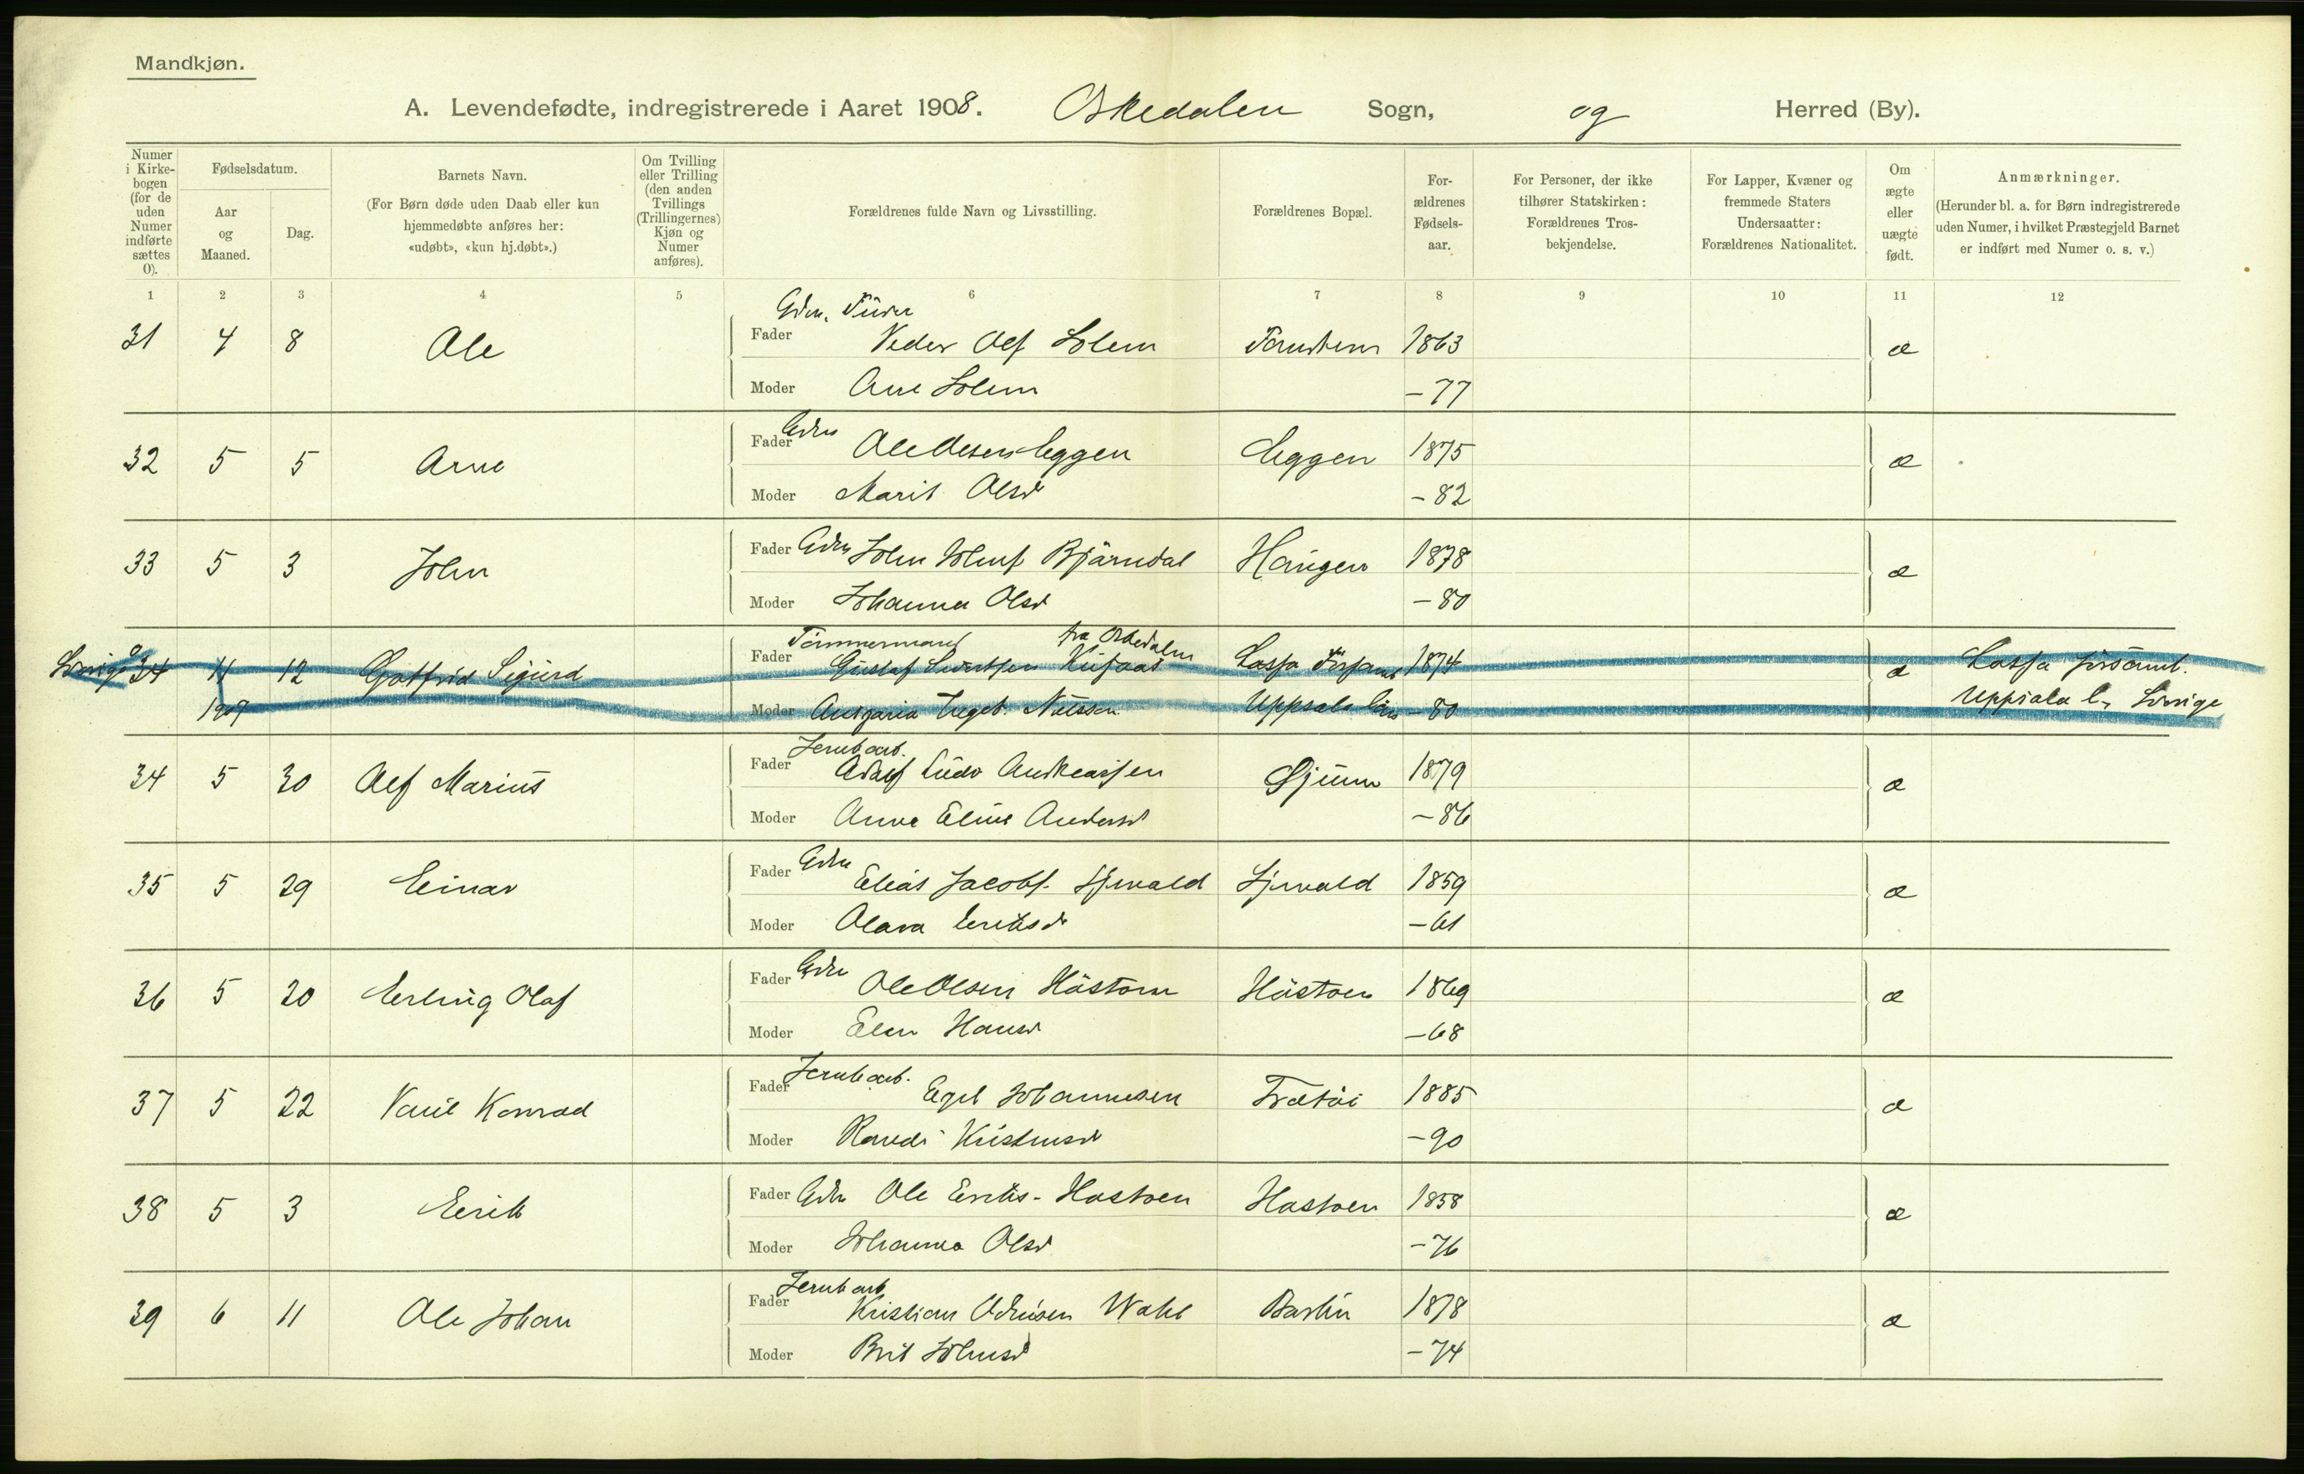 Mandkjøn.
A. Levendefødte, indregistrerede i Aaret 1908. Orkedalen Sogn, og Herred (By).
Numer i Kirkebogen (for de uden Numer indførte sættes 0).
Fødselsdatum.
Aar og Maaned.
Dag.
Barnets Navn.
(For Børn døde uden Daab eller kun hjemmedøbte anføres her: «udøbt», «kun hj.døbt».)
Om Tvilling eller Trilling (den anden Tvillings (Trillingernes) Kjøn og Numer anføres).
Forældrenes fulde Navn og Livsstilling.
Forældrenes Bopæl.
Forældrenes Fødselsaar.
For Personer, der ikke tilhører Statskirken: Forældrenes Trosbekjendelse.
For Lapper, Kvæner og fremmede Staters Undersaatter: Forældrenes Nationalitet.
Om ægte eller uægte født.
Anmærkninger.
(Herunder bl. a. for Børn indregistrerede uden Numer, i hvilket Præstegjeld Barnet er indført med Numer o. s. v.)
1 2 3 4 5 6 7 8 9 10 11 12
Gdm.
31 4 8 Ole Fader Peder Olsen Solem 1863 æ
Moder Ane Solem -77
Gdm
32 5 5 Arne Fader Ole Olesen Eggen Eggen 1875 æ
Moder Marit Olsd -82
33 5 3 John Fader Gdm John Johns Bjørndal Haugen 1878 æ
Moder Johanna Olsd -80
Tømmermand fra Orkedalen
Sverige 0 34 11 12 Gotfrid Sigurd Fader Gustaf Sivertsen Lassa Förs 1874 æ Lassa församl.
1907 Moder Ansgaria Ingeb. Nilssen Uppsala län -80 Uppsala l., Sverige
Jernb arb.
34 5 30 Alf Marius Fader Adolf Ludv Andreassen Gjønn 1879 æ
Moder Anna Eline Andersd -86
Gdm
35 5 29 Einar Fader Elias Jacobs. Sjuvald Sjuvald 1859 æ
Moder Olava Eriksd -61
Gdm
36 5 20 Erling Olaf Fader Ole Olsen Høston Høston 1869 æ
Moder Elen Hansd -68
Jernb arb.
37 5 22 Paul Konrad Fader Egil Johannesen 1885 æ
Moder Randi Kristensd -90
38 5 3 Erik Fader Gdm Ole Eriks. Hostoen Hostoen 1858 æ
Moder Johanna Olsd -76
Jernb arb
39 6 11 Ole Johan Fader Kristian Wahl 1878 æ
Moder Brit Johnsd -74